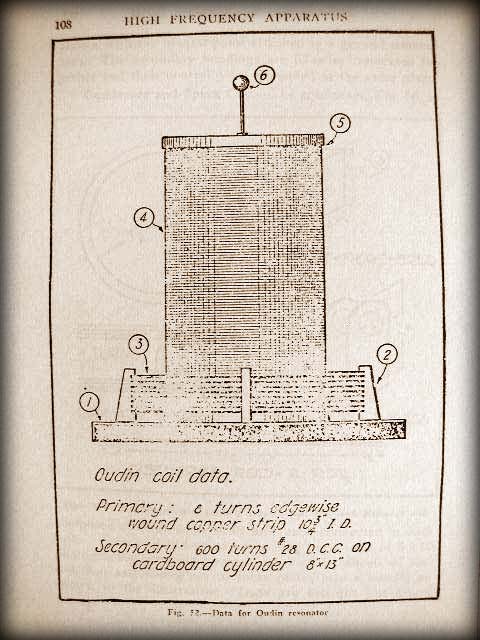 108
HIGH FREQUENCY APPARATUS
6
5
4
3
2
1
Oudin coil data.
Primary: turns edgewise
wound copper strip 10¾" I.D.
Secondary: 600 turns #28 D.C.C. on
cardboard cylinder 8"x13"
Fig. 52.—Data for Oudin resonator